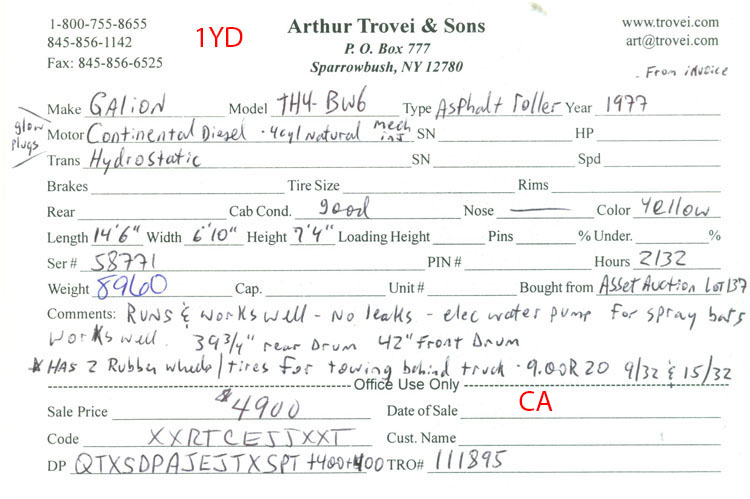 1-800-755-8655 1YD Arthur Trovei & Sons www.trovei.com
845-856-1142 P. O. Box 777 art@trovei.com
Fax: 845-856-6525 Sparrowbush, NY 12780
. From invoice
Make GALION Model TH4-BW6 Type Asphalt roller Year 1977
glow plugs
Motor Continental Diesel - 4cyl Natural Mech inj SN HP
Trans Hydrostatic SN Spd
Brakes Tire Size Rims
Rear Cab Cond. good Nose — Color Yellow
Length 14'6" Width 6'10" Height 7'4" Loading Height Pins % Under. %
Ser # 58771 PIN # Hours 2132
Weight 8960 Cap. Unit # Bought from Asset Auction Lot 137
Comments: Runs & works well - no leaks - elec water pump for spray bars
works well. 39 3/4" rear Drum 42" Front Drum
* HAS 2 Rubber wheels/tires for towing behind truck - 9.00R20 9/32 & 15/32
Office Use Only
Sale Price $4900 Date of Sale CA
Code XXRTCEJJXXT Cust. Name
DP QTXSDPAJEJTXSPT +400+400 TRO# 111895